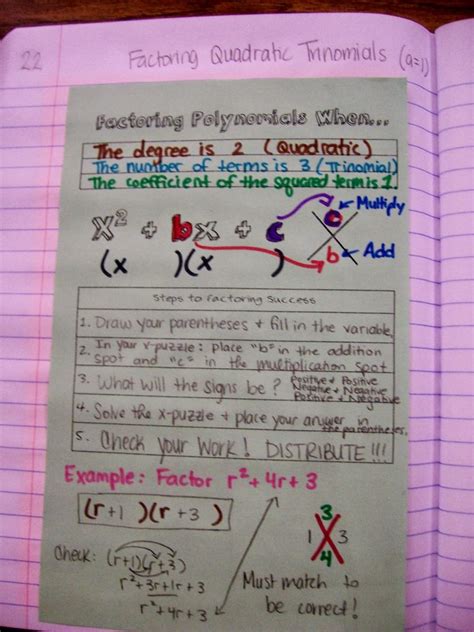 22
Factoring Quadratic Trinomials (a=1)
Factoring Polynomials When...
The degree is 2 (Quadratic)
The number of terms is 3 (Trinomial)
The coefficient of the squared term is 1.
x² + bx + c
(x )(x )
c Multiply
b Add
Steps to Factoring Success
1. Draw your parentheses + fill in the variable.
2. In your x-puzzle: place "b" in the addition
spot and "c" in the multiplication spot
3. What will the signs be? Positive + Positive
Negative + Negative
Positive + Negative
4. Solve the x-puzzle + place your answer in
the parentheses.
5. Check your Work! DISTRIBUTE!!!
Example: Factor r² + 4r + 3
(r+1)(r+3)
3
1 3
4
Check: (r+1)(r+3)
r²+3r+1r+3
r²+4r+3
Must match to
be correct!